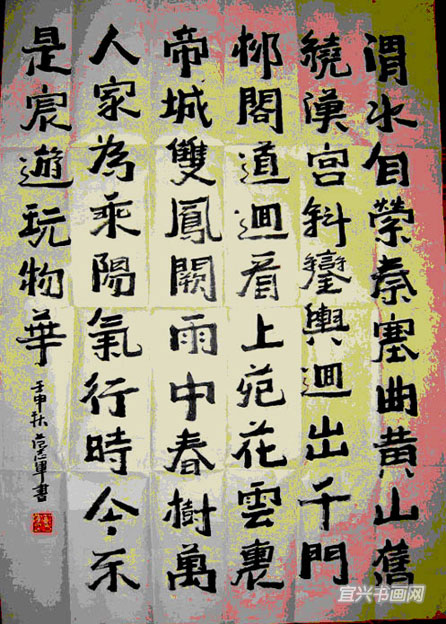 渭水自縈秦塞曲黄山舊
繞漢宮斜鑾輿迴出千門
柳閣道迴看上苑花雲裏
帝城雙鳳闕雨中春樹萬
人家為乘陽氣行時令不
是宸遊玩物華
壬申秋 軍書
宜兴书画网